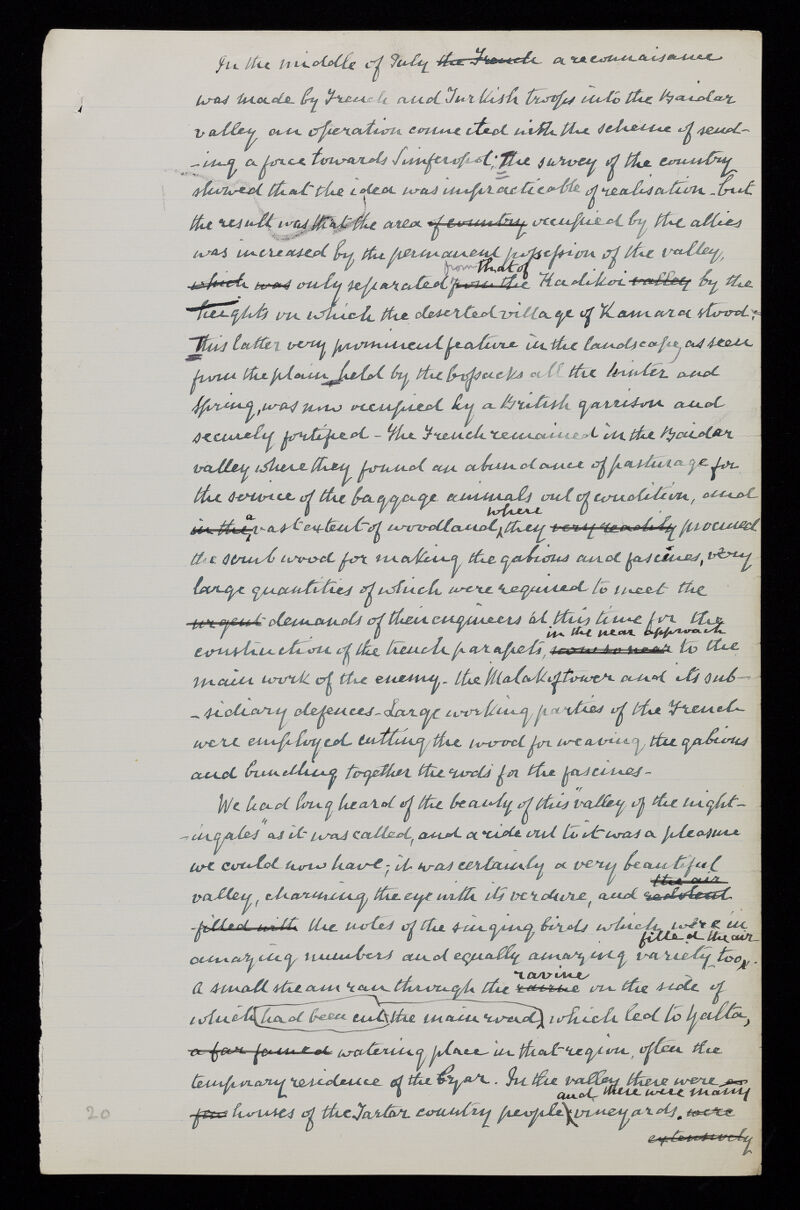 In the middle of July the French a reconnaisance
was made by French and Turkish troops into the Baidar
valley an operation connected with the scheme of send-
-ing a force towards Simferopol; The survey of the country
showed that the idea was impracticable of realisation - but
the result was that the area of country occupied by the allies
was increased by the permanent possession of the valley,
from that of
which was only separated from the Kadikoi valley by the
heights on which the deserted village of Kamara stood;
This latter very prominent feature in the landscape, as seen
from the plain, held by the Cossacks all the Winter and
Spring, was now occupied by a British garrison and
securely fortified - The French remained in the Baidar
valley where they found an abundance of pasturage for
the service of the baggage animals out of condition, and
a where
in the vast extent of woodland, they very readily procured
the scrub wood for making the gabions and fascines, very
large quantities of which were required to meet the
urgent demands of their engineers at this time for the
in the near approach
construction of the trench parapets, now so near to the
main work of the enemy - the Malakoftower and its sub-
-sidiary defences - Large working parties of the French
were employed cutting the wood for weaving the gabions
and bundling together the rods for the fascines -
We had long heard of the beauty of this "valley of the night-
-ingales" as it was called, and a ride out to it was a pleasure
we could now have; it was certainly a very beautiful
the air
valley, charming the eye with its verdure, and redolent
filled with the notes of the singing birds which were in
filled the air
amazing numbers and equally amazing variety too.
ravine
A small stream ran through the on the side of
which had been cut the main road, which led to Yalta,
a far famed watering place in that region, often the
temporary residence of the Czar. In the valley there were a
and there were many
few houses of the Tartar country people; vineyards. were
extensively
20